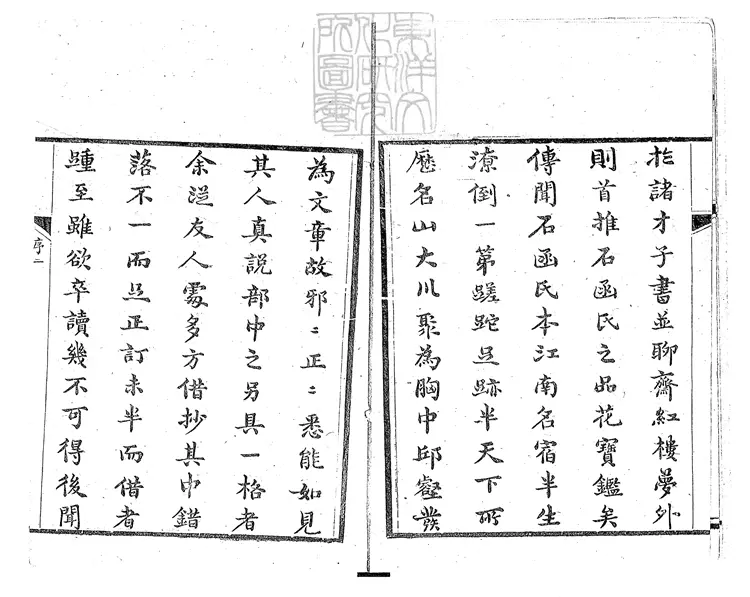 於諸才子書並聊齋紅樓夢外
則首推石函氏之品花寶鑑矣
傳聞石函氏本江南名宿半生
潦倒一第蹉跎足跡半天下所
歷名山大川聚為胸中邱壑發
為文章故邪〻正〻悉能如見
其人真說部中之另具一格者
余從友人處多方借抄其中錯
落不一而足正訂未半而借者
踵至雖欲卒讀幾不可得後聞
序二
東洋文
化研究
所圖書